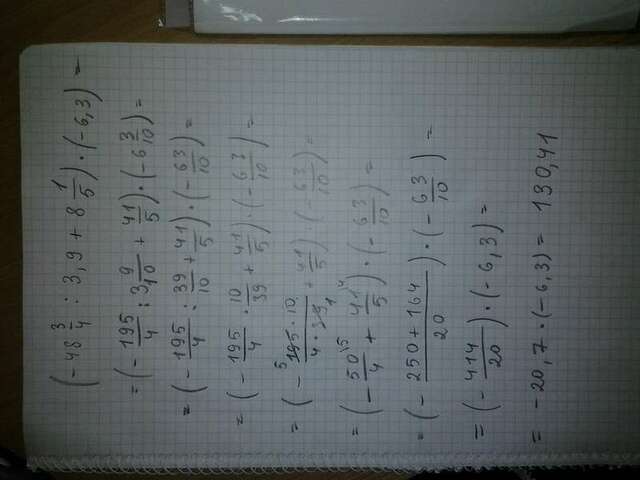 (-48 3/4 : 3,9 + 8 1/5) · (-6,3) =
= (- 195/4 : 3 9/10 + 41/5) · (-6 3/10) =
= (- 195/4 : 39/10 + 41/5) · (- 63/10) =
= (- 195/4 · 10/39 + 41/5) · (- 63/10) =
= (- 195 · 10/4 · 39 + 41/5) · (- 63/10) =
= (- 50\5/4 + 41\4/5) · (- 63/10) =
= (- 250 + 164/20) · (- 63/10) =
= (- 414/20) · (-6,3) =
= -20,7 · (-6,3) = 130,41